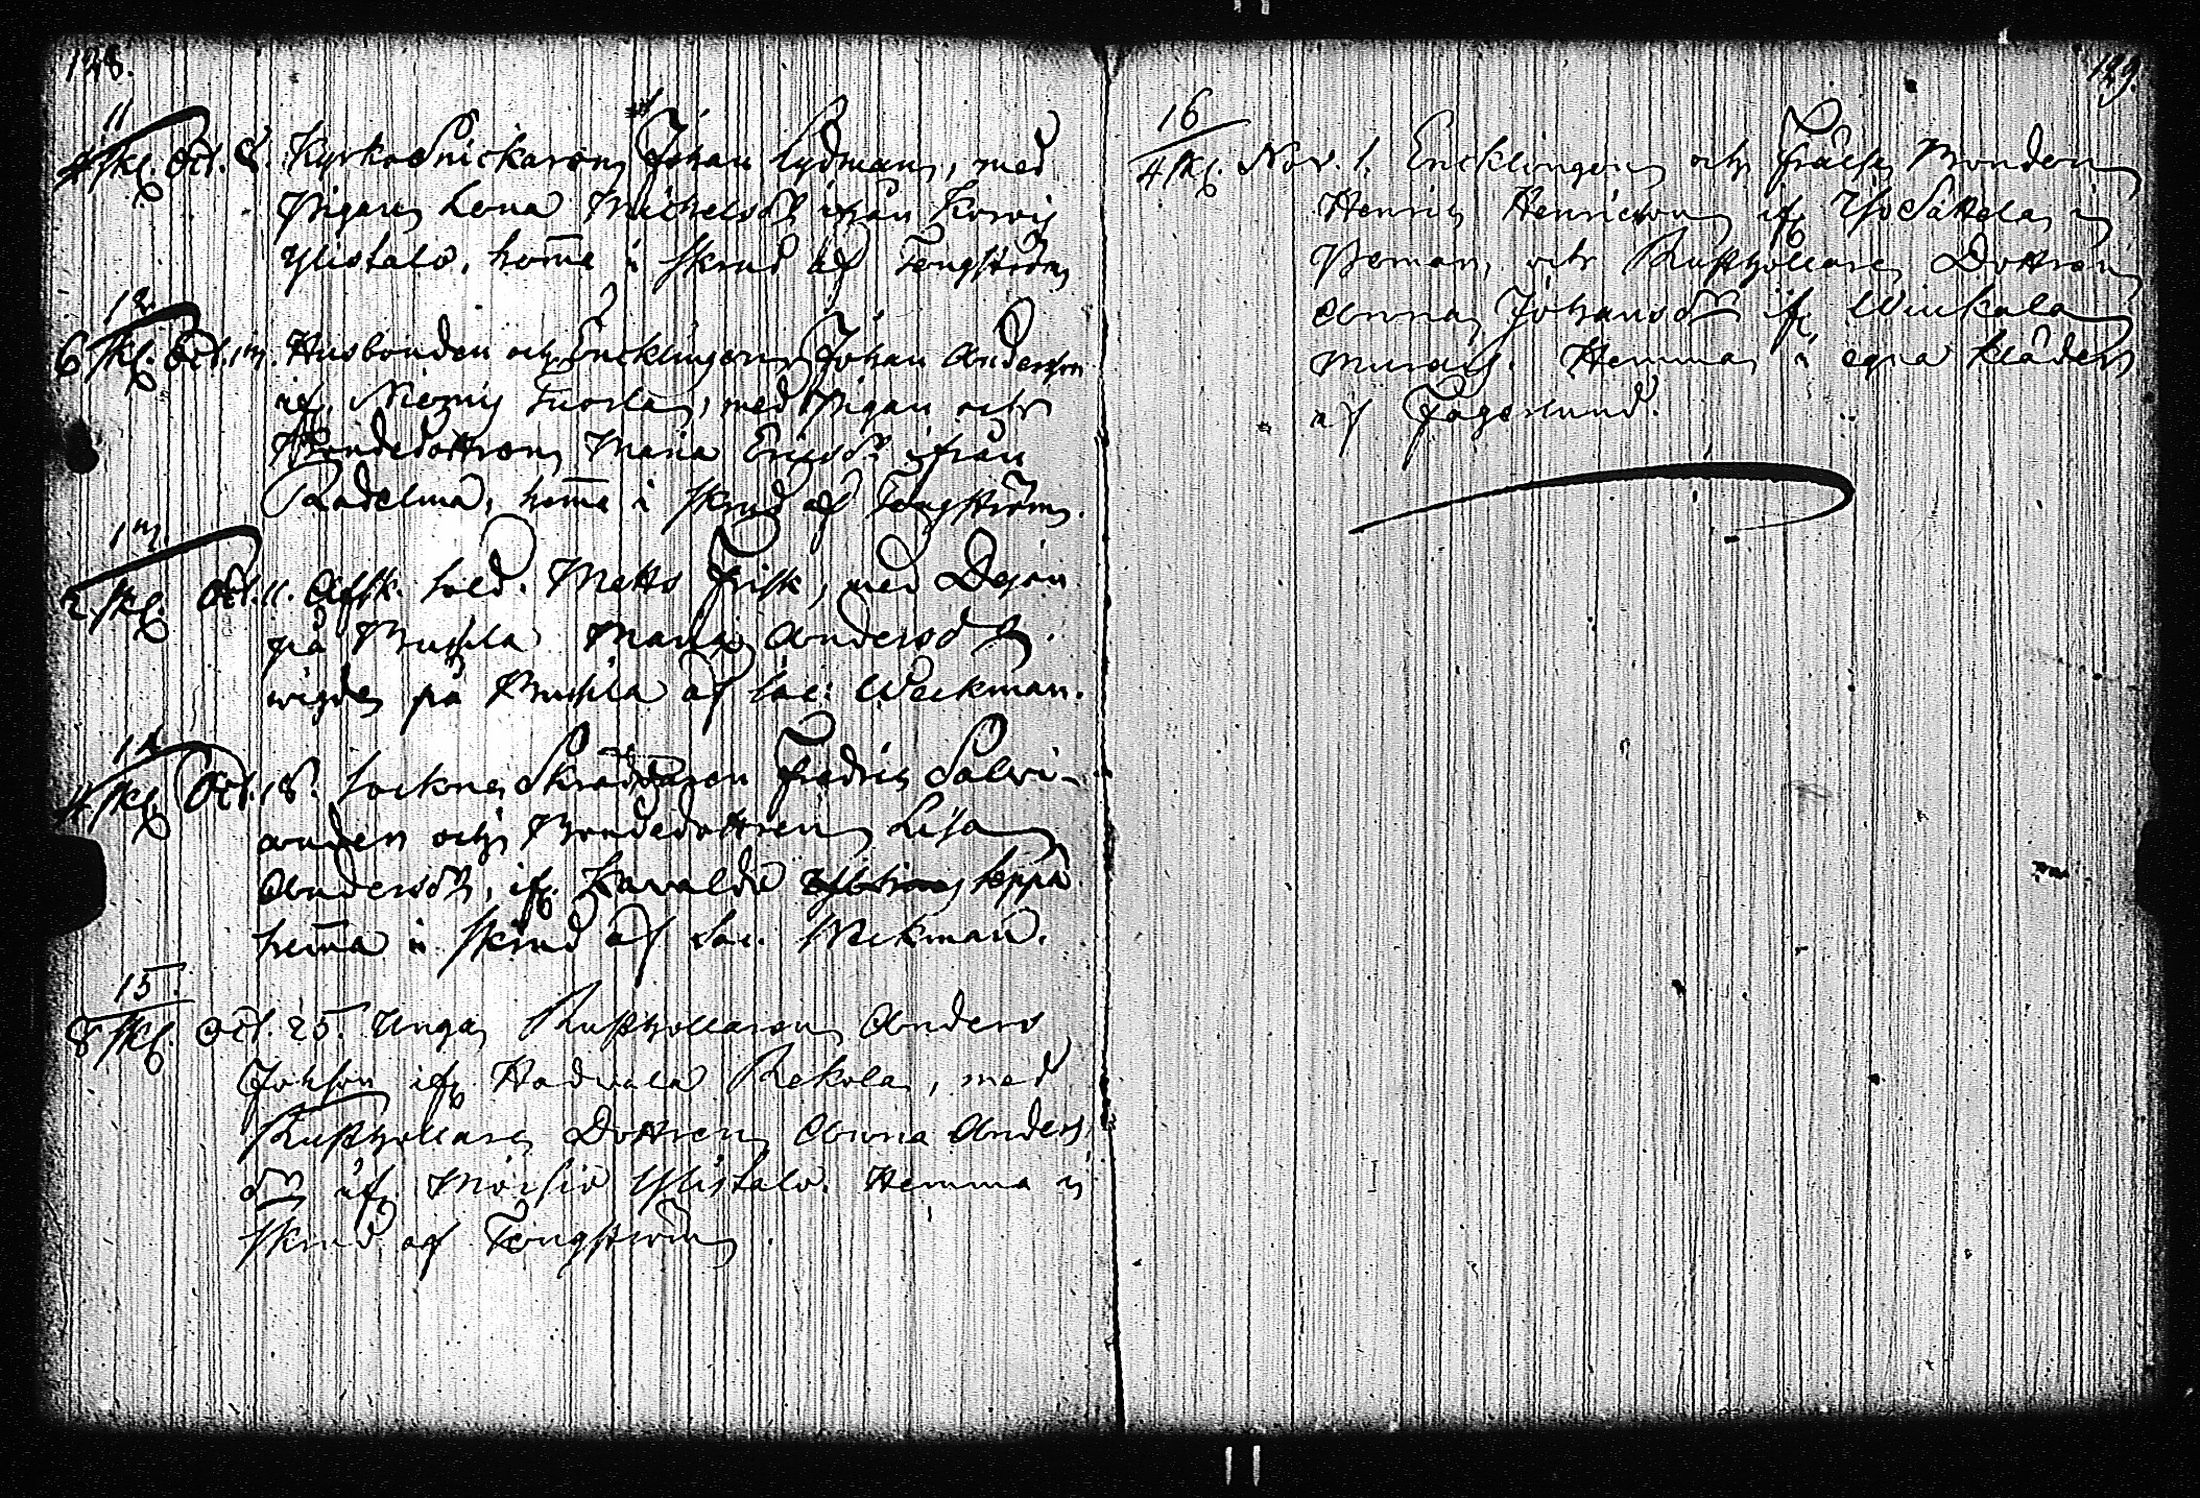 128.
11
4 skl. Oct. 8. Kyrkosnickaren Johan Lydman, med
Pigan Lena Michelsdr ifrån Korvi
Ylistalo, hem̄a i skrud af Tengström
12
6 skl. Oct. Husbonden och Encklingen Johan Andersson
if. Niemi Tuorla, med Pigan och
Bondedottren Maria Ericsdr ifrån
Radelma, hem̄a i skrud af Tengström.
13
2 skl. Oct. 11. Afsk. sold. Matts Frisk, med Dejan
på Maria Andersdr.
vigde på af Sac: Weckman.
14
4 skl. Oct. 18. Sockne Skräddaren Fredric Salvi-
ander och Bondedottren Lisa
Andersdr, if. Leppä
hem̄a i skrud af Sac. Wekman.
15.
8 skl. Oct. 25. Unga Rusthollaren Anders
Johsson if. Hadvala Rekola, med
Rusthollare Dottren Anna Anders
dr if. Moisio Ylistalo. Hemma i
skrud af Tengström.
129.
16
4 skl. Nov. 1. Encklingen och Frälse Bonden
Henric Henricson if. Iso Sattela i
Pemar, och Rusthollare Dottren
Anna Johansdr if. Wiukala
Hemma i egna kläder
af Fagerlund.